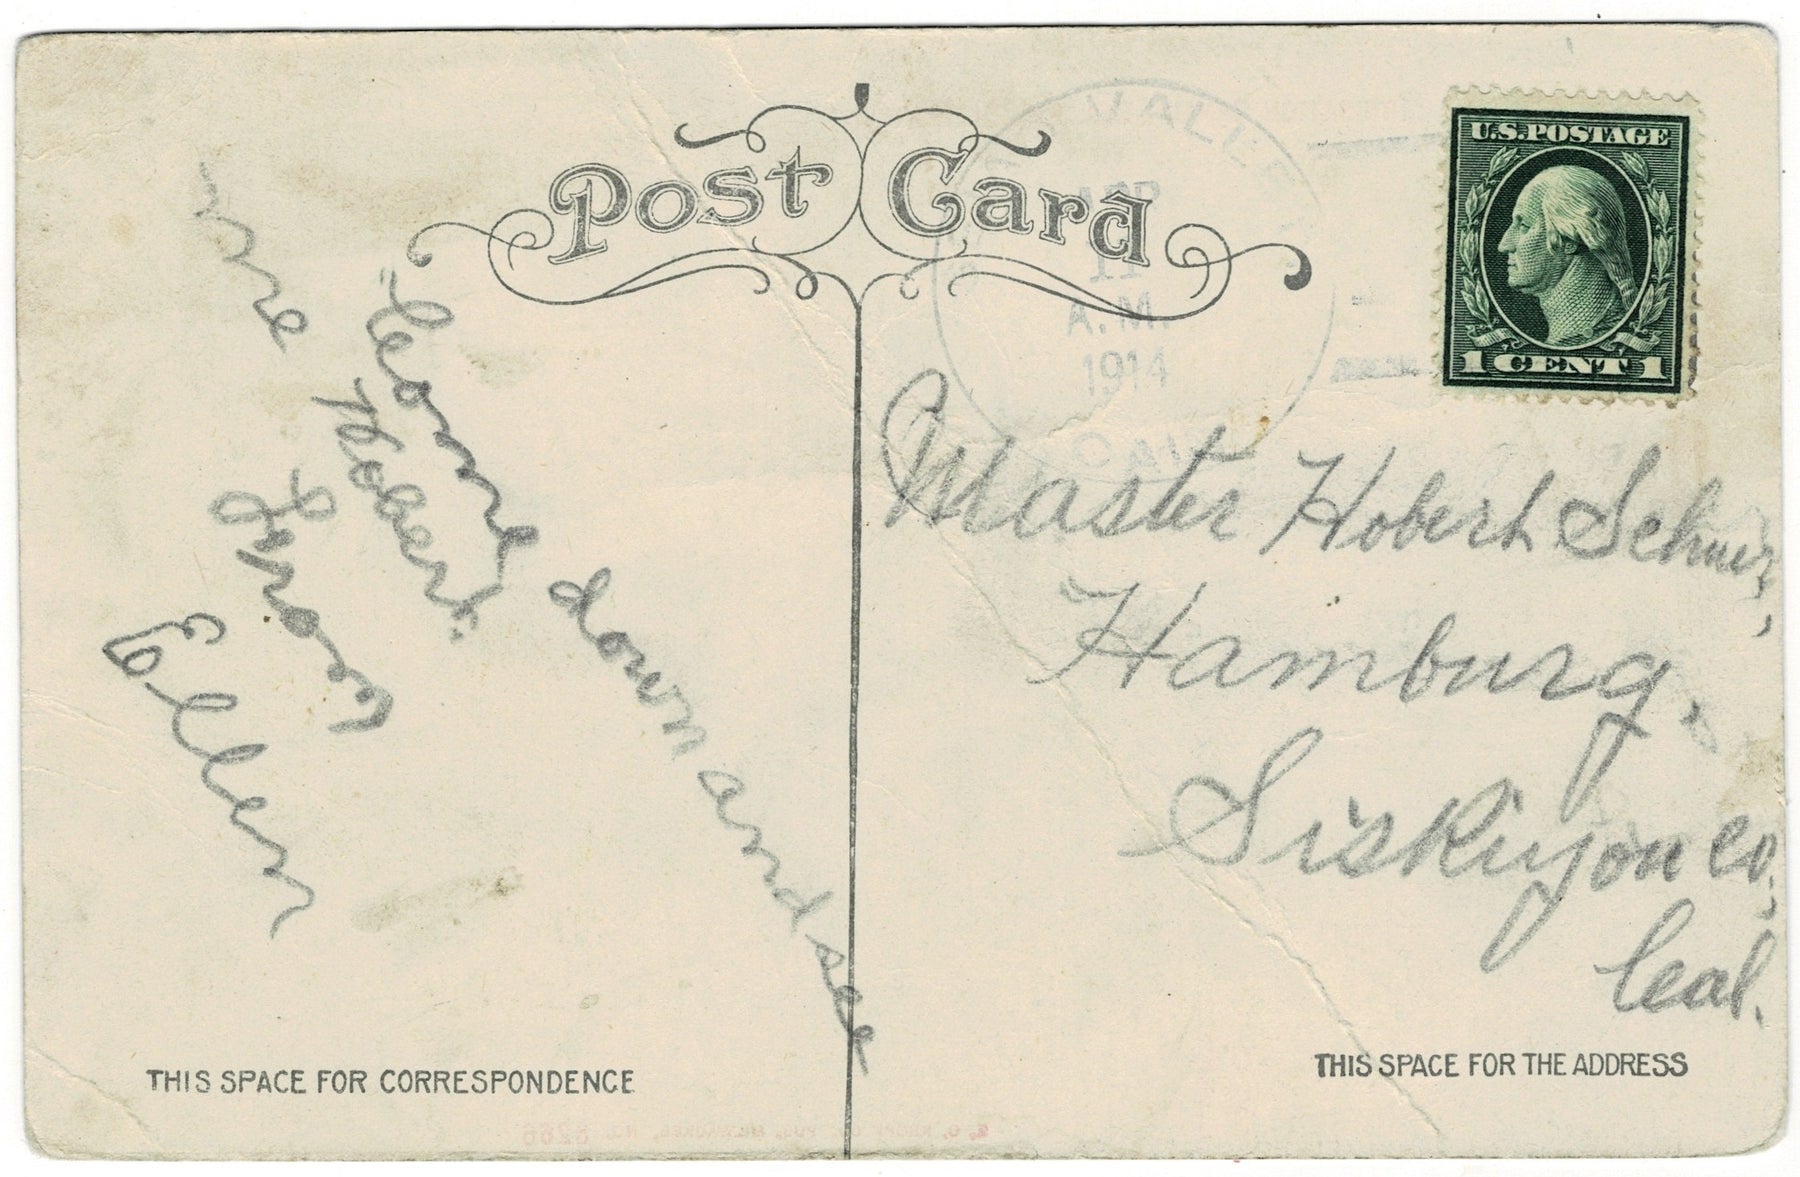 Post Card
APR
11
A.M.
1914
CAL.
U.S. POSTAGE
1 CENT 1
"Come down and see
me Hobert.
from
Ellen
Master Hobert
Hamburg,
Siskiyou Co.,
Cal.
THIS SPACE FOR CORRESPONDENCE
THIS SPACE FOR THE ADDRESS